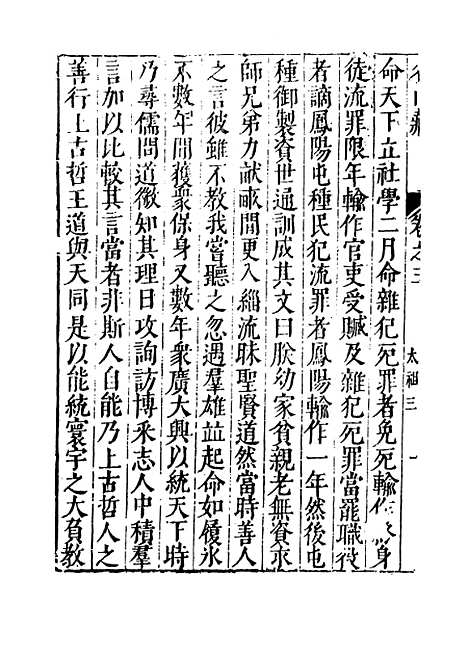 名山藏　卷之三　太祖三　一
命天下立社學二月命雜犯死罪者免死輸作終身
徒流罪限年輸作官吏受贓及雜犯死罪當罷職役
者謫鳳陽屯種民犯流罪者鳳陽輸作一年然後屯
種御製資世通訓成其文曰朕幼家貧親老無資求
師兄弟力献畝間更入緇流昧聖賢道然當時善人
之言彼雖不教我嘗聽之忽遇羣雄並起命如履氷
不數年間獲衆保身又數年衆廣大興以統天下時
乃尋儒問道微知其理日攻詢訪博采志人中積羣
言加以比較其言當者非斯人自能乃上古哲人之
善行上古哲王道與天同是以能統寰宇之大負教